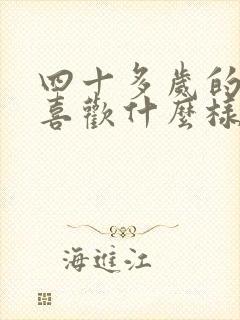 四十多歲的
喜歡什麼樣
海進江